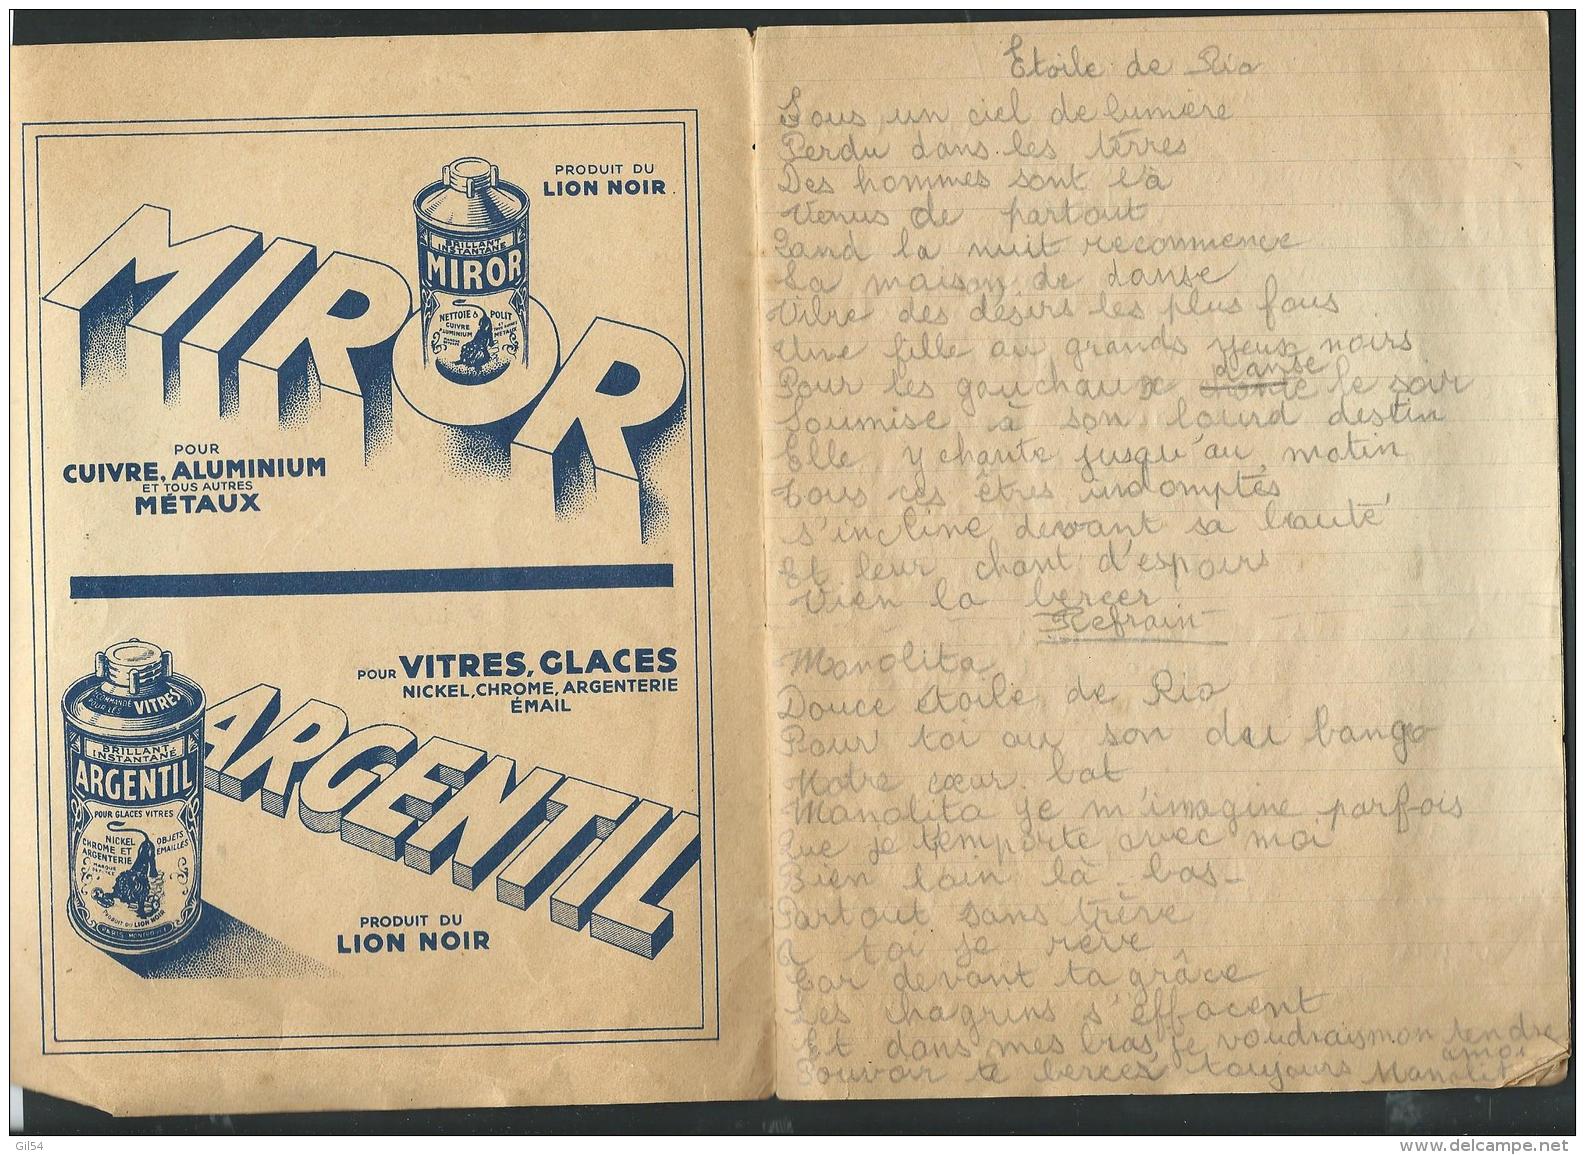 PRODUIT DU
LION NOIR
MIROR
BRILLANT
INSTANTANÉ
MIROR
NETTOIE & POLIT
CUIVRE
ALUMINIUM
MÉTAUX
POUR
CUIVRE, ALUMINIUM
ET TOUS AUTRES
MÉTAUX
POUR VITRES, GLACES
NICKEL, CHROME, ARGENTERIE
ÉMAIL
ARGENTIL
RECOMMANDÉ
POUR LES VITRES
BRILLANT
INSTANTANÉ
ARGENTIL
POUR GLACES VITRES
NICKEL
CHROME ET
ARGENTERIE
OBJETS
ÉMAILLÉS
PRODUIT DU LION NOIR
PARIS MONTROUGE
PRODUIT DU
LION NOIR
Etoile de Rio
Sous un ciel de lumière
Perdu dans les terres
Des hommes sont là
Venus de partout
Qand la nuit recommence
La maison de danse
Vibre des désirs les plus fous
Une fille au grands yeux noirs
danse
Pour les gauchaux chante le soir
Soumise à son lourd destin
Elle y chante jusqu'au matin
Tous ces êtres indomptés
s'incline devant sa bauté
Et leur chant d'espoirs
Vien la bercer
Refrain
Manolita
Douce étoile de Rio
Pour toi au son du bango
Notre cœur bat
Manolita je m'imagine parfois
Que je t'emporte avec moi
Bien loin là-bas-
Partout sans trêve
A toi je rêve
Car devant ta grâce
Les chagrins s'effacent
Et dans mes bras je voudrais mon tendre
amor
Pouvoir te bercer toujours Manolita
Gil54
www.delcampe.net